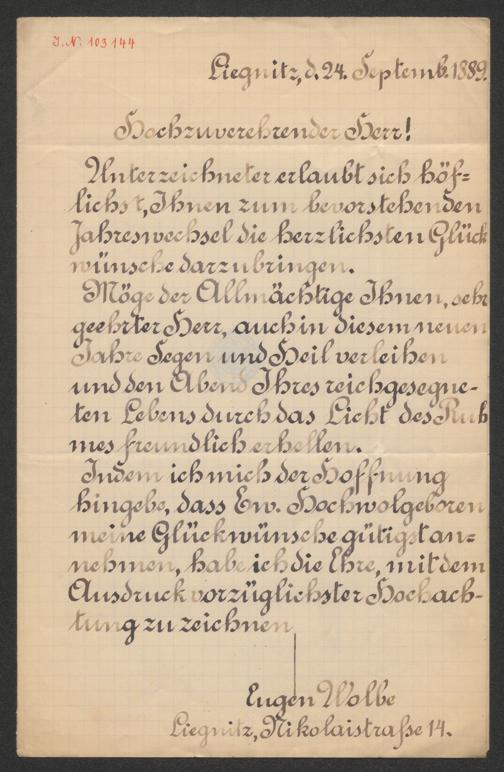 J.N. 103144
Liegnitz, d. 24. Septemb. 1889.
Hochzuverehrender Herr!
Unterzeichneter erlaubt sich höf=
lichst, Ihnen zum bevorstehenden
Jahreswechsel die herzlichsten Glück
wünsche darzubringen.
Möge der Allmächtige Ihnen, sehr
geehrter Herr, auch in diesem neuen
Jahre Segen und Heil verleihen
und den Abend Ihres reichgesegne-
ten Lebens durch das Licht des Ruh
mes freundlich erhellen.
Indem ich mich der Hoffnung
hingebe, dass Ew. Hochwolgeboren
meine Glückwünsche gütigst an=
nehmen, habe ich die Ehre, mit dem
Ausdruck vorzüglichster Hochach-
tung zu zeichnen
Eugen Wolbe
Liegnitz, Nikolaistraße 14.